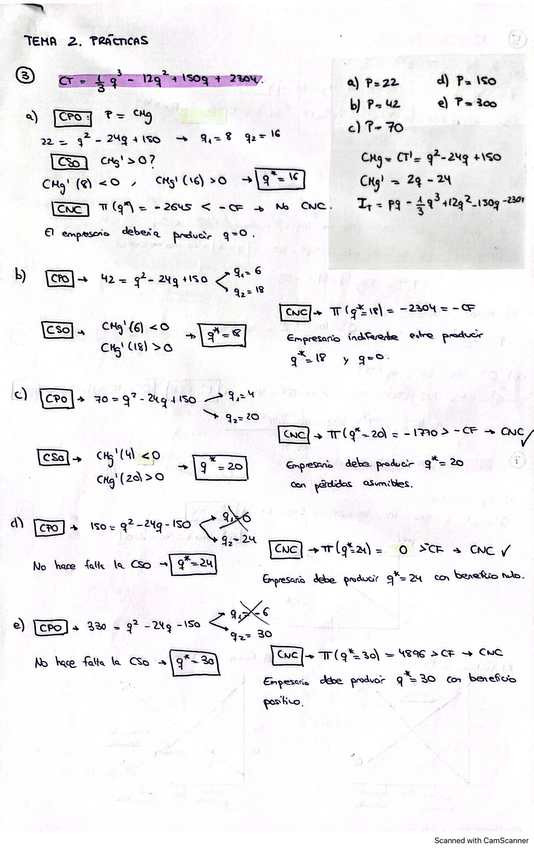 TEMA 2. PRÁCTICAS
③ CT = 1/3 q³ - 12q² + 150q + 2304.
a) P = 22 d) P = 150
b) P = 42 e) P = 300
c) P = 70
CMg = CT' = q² - 24q + 150
CMg' = 2q - 24
IT = Pq - 1/3 q³ + 12q² - 150q - 2304
a) CPO: P = CMg
22 = q² - 24q + 150 → q₁ = 8 q₂ = 16
CSO CMg' > 0?
CMg'(8) < 0, CMg'(16) > 0 → q* = 16
CNC π(q*) = -2645 < -CF → No CNC.
El empresario debería producir q = 0.
b) CPO → 42 = q² - 24q + 150 q₁ = 6
q₂ = 18
CSO → CMg'(6) < 0
CMg'(18) > 0 → q* = 18
CNC → π(q* = 18) = -2304 = -CF
Empresario indiferente entre producir
q* = 18 y q = 0.
c) CPO → 70 = q² - 24q + 150 q₁ = 4
q₂ = 20
CSO → CMg'(4) < 0
CMg'(20) > 0 → q* = 20
CNC → π(q* = 20) = -1770 > -CF → CNC ✓
Empresario debe producir q* = 20
con pérdidas asumibles.
d) CPO → 150 = q² - 24q - 150 q₁ = 0
q₂ = 24
No hace falta la CSO → q* = 24
CNC → π(q* = 24) = 0 > CF → CNC ✓
Empresario debe producir q* = 24 con beneficio nulo.
e) CPO → 330 = q² - 24q - 150 q₁ = -6
q₂ = 30
No hace falta la CSO → q* = 30
CNC → π(q* = 30) = 4896 > CF → CNC
Empresario debe producir q* = 30 con beneficio
positivo.
Scanned with CamScanner